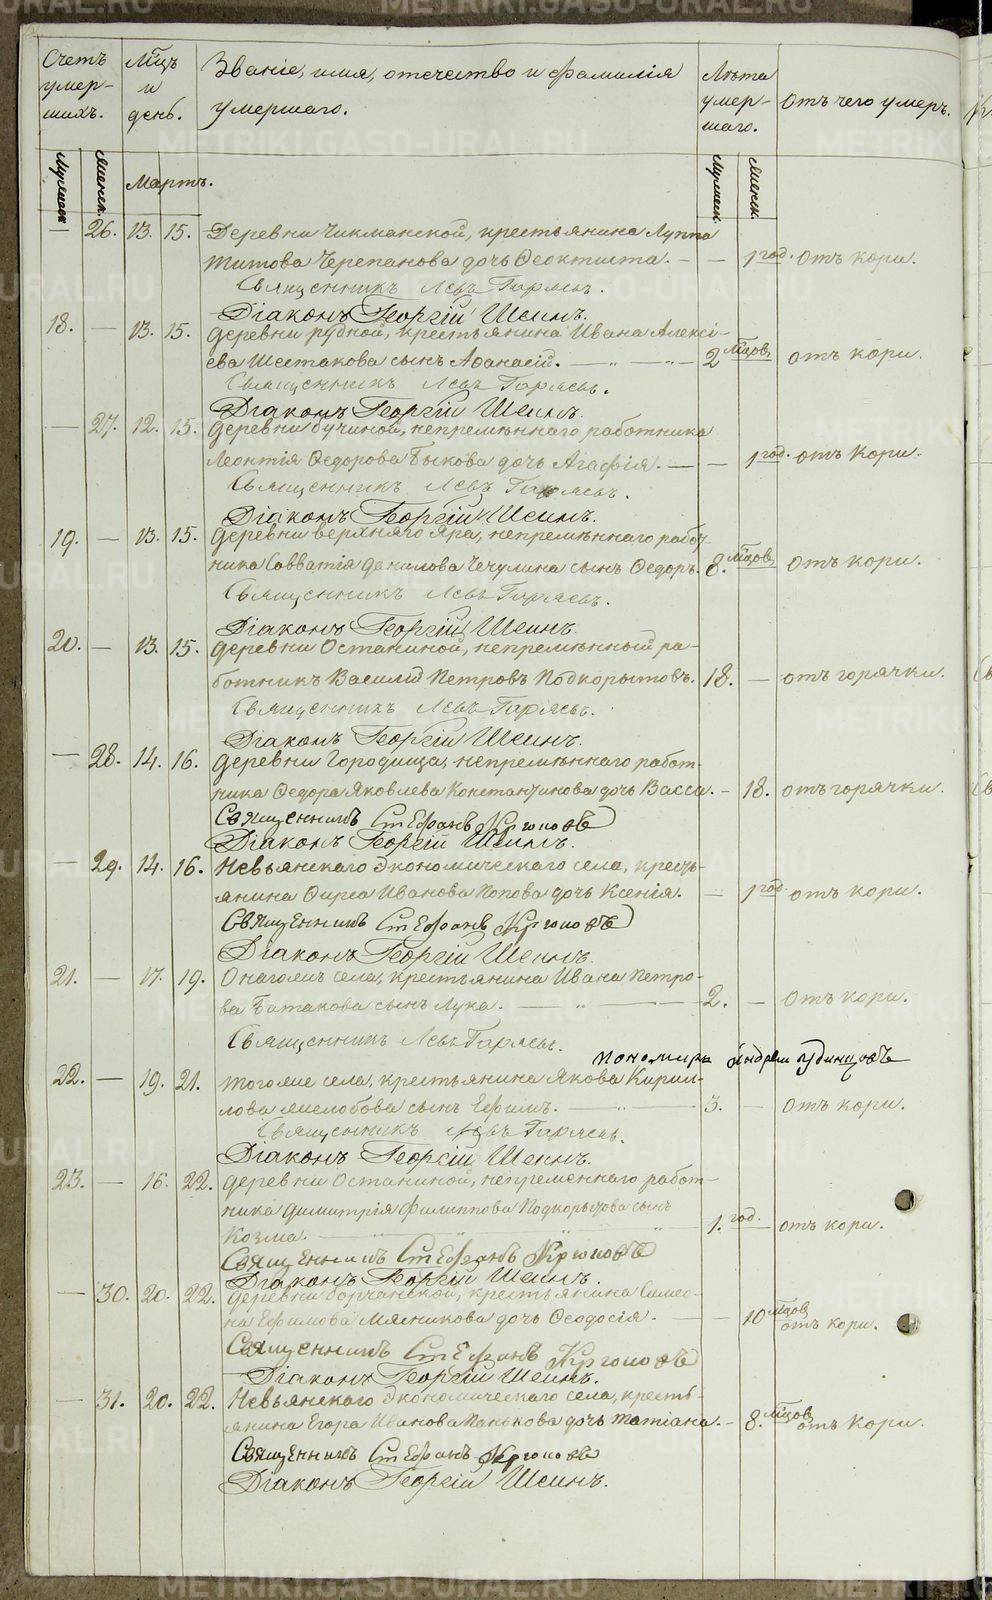 Счетъ умер-шихъ.
Мцъ и день.
Званіе, имя, отечество и фамилія умершаго.
Лѣта умер-шаго.
Отъ чего умеръ.
Мужеск. Женск.
Мартъ.
Мужеск. Женск.
26. 13. 15. Деревни Чикманской, крестьянина Луппа
Титова Черепанова дочь Феоктиста. — — 1 год. отъ кори.
Священникъ Левъ Гаряевъ.
Діаконъ Георгій Шеинъ.
18. — 13. 15. Деревни рудной, крестьянина Ивана Алексі-
ева Шестакова сынъ Афанасій. — „ — „ — 2 мцов. отъ кори.
Священникъ Левъ Гаряевъ.
Діаконъ Георгій Шеинъ.
— 27. 12. 15. Деревни бучиной, непремѣннаго работника
Леонтія Федорова Быкова дочь Агафія. — — 1 год. отъ кори.
Священникъ Левъ Гаряевъ.
Діаконъ Георгій Шеинъ.
19. — 13. 15. Деревни верхняго Яра, непремѣннаго работ-
ника Савватія Данилова Чечулина сынъ Федоръ. 8. мцов. отъ кори.
Священникъ Левъ Гаряевъ.
Діаконъ Георгій Шеинъ.
20. — 13. 15. Деревни Останиной, непремѣнный ра-
ботникъ Василій Петровъ Подкорытовъ. 18. — отъ горячки.
Священникъ Левъ Гаряевъ.
Діаконъ Георгій Шеинъ.
— 28. 14. 16. Деревни Городища, непремѣннаго работ-
ника Федора Яковлева Константинова дочь Васса. — 18. отъ горячки.
Священникъ Стефанъ
Діаконъ Георгій Шеинъ.
— 29. 14. 16. Невьянскаго Экономическаго села, кресть-
янина Фирса Иванова Попова дочь Ксенія. — 1 год. отъ кори.
Священникъ Стефанъ
Діаконъ Георгій Шеинъ.
21. — 17. 19. Онагожъ села, крестьянина Ивана Петро-
ва Батакова сынъ Лука. — „ — 2. — отъ кори.
Священникъ Левъ Гаряевъ.
Пономарь Андрей Удинцовъ
22. — 19. 21. Тогоже села, крестьянина Якова Кирил-
лова сынъ Ефимъ. — „ — 3. — отъ кори.
Священникъ Левъ Гаряевъ.
Діаконъ Георгій Шеинъ.
23. — 16. 22. Деревни Останиной, непременнаго работ-
ника Димитрія Филиппова Подкорытова сынъ
Козма. — „ — „ — „ — 1. год. — отъ кори.
Священникъ Стефанъ
Діаконъ Георгій Шеинъ.
— 30. 20. 22. Деревни борчанской, крестьянина Симео-
на Ефимова Мясникова дочь Феодосія. — — 10 мцов. отъ кори.
Священникъ Стефанъ
Діаконъ Георгій Шеинъ.
— 31. 20. 22. Невьянскаго Экономическаго села, кресть-
янина Егора Иванова Панькова дочь Татіана. — 8. мцов. отъ кори.
Священникъ Стефанъ
Діаконъ Георгій Шеинъ.
METRIKI.GASO-URAL.RU